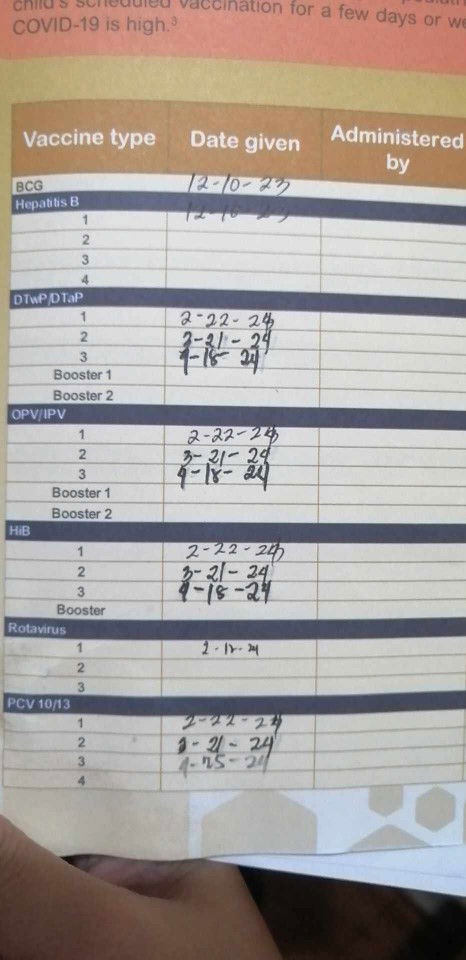 child's scheduled vaccination for a few days or we
COVID-19 is high.³
Vaccine type Date given Administered by
BCG 12-10-23
Hepatitis B
1 12-10-23
2
3
4
DTwP/DTaP
1 2-22-24
2 3-21-24
3 4-18-24
Booster 1
Booster 2
OPV/IPV
1 2-22-24
2 3-21-24
3 4-18-24
Booster 1
Booster 2
HiB
1 2-22-24
2 3-21-24
3 4-18-24
Booster
Rotavirus
1
2
3
PCV 10/13
1 2-22-24
2 3-21-24
3
4